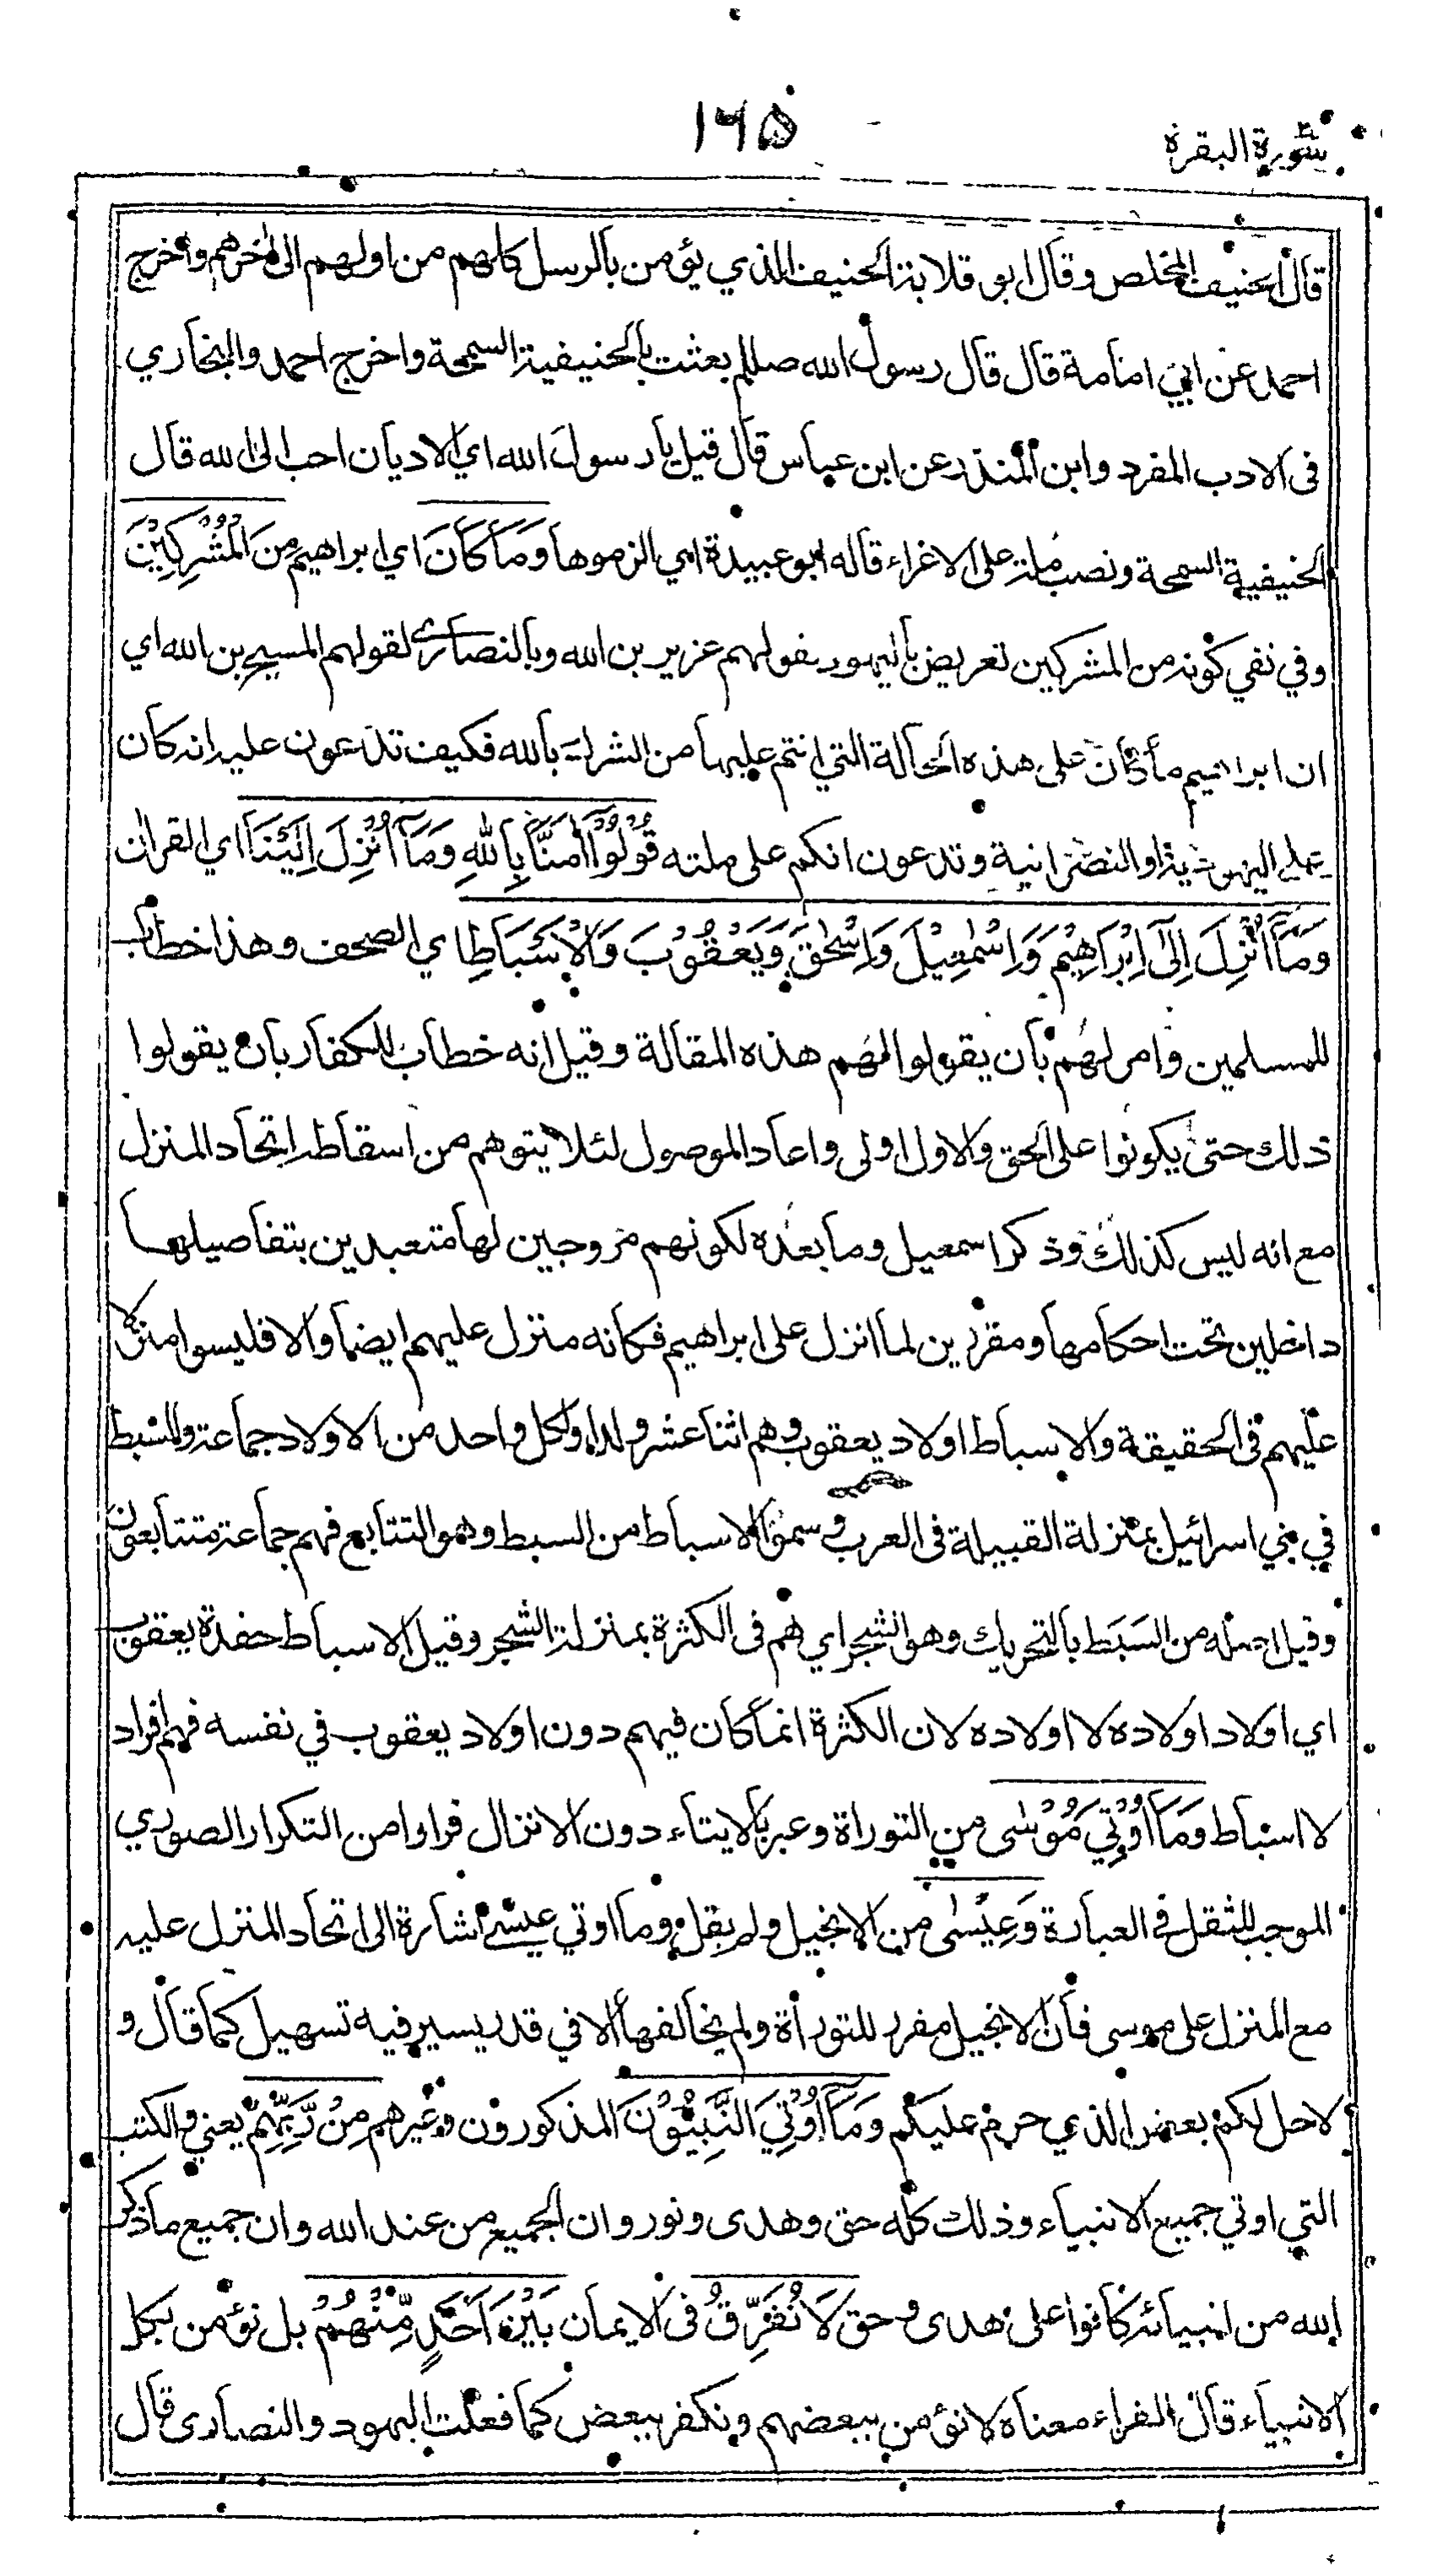 سورة البقرة
١٦٥
قال الحنيف المخلص وقال ابو قلابة الحنيف الذي يؤمن بالرسل كلهم من اولهم الى اخرهم واخرج
احمد عن ابي امامة قال قال رسول الله صللم بعثت بالحنيفية السمحة واخرج احمد والبخاري
فى الادب المفرد وابن المنذر عن ابن عباس قال قيل يا رسول الله اي الاديان احب الى الله قال
الحنيفية السمحة ونصب ملة على الاغراء قاله ابو عبيدة اي الزموها وَمَا كَانَ اي ابراهيم مِنَ الْمُشْرِكِيْنَ
وفي نفي كونه من المشركين تعريض باليهود بقولهم عزير بن الله وبالنصارى لقولهم المسيح بن الله اي
ان ابراهيم ما كان على هذه الحالة التي انتم عليها من الشرك بالله فكيف تدعون عليه انه كان
على اليهودية او النصرانية وتدعون انكم على ملته قُوْلُوْا اٰمَنَّا بِاللّٰهِ وَمَا اُنْزِلَ اِلَيْنَا اي القران
وَمَا اُنْزِلَ اِلٰى اِبْرَاهِيْمَ وَاِسْمٰعِيْلَ وَاِسْحٰقَ وَيَعْقُوْبَ وَالْاَسْبَاطِ اي الصحف وهذا خطاب
للمسلمين وامر لهم بان يقولوا لهم هذه المقالة وقيل انه خطاب للكفار بان يقولوا
ذلك حتى يكونوا على الحق والاول اولى واعاد الموصول لئلا يتوهم من اسقاطه اتحاد المنزل
مع انه ليس كذلك وذكر اسمعيل وما بعده لكونهم مزوجين لها متعبدين بتفاصيلها
داخلين تحت احكامها ومقررين لما انزل على ابراهيم فكانه منزل عليهم ايضا والا فليسوا منزلا
عليهم فى الحقيقة والاسباط اولاد يعقوب وهم اثنا عشر ولدا ولكل واحد من الاولاد جماعة والسبط
في بني اسرائيل بمنزلة القبيلة فى العرب وسموا الاسباط من السبط وهو التتابع فهم جماعة متتابعون
وقيل اصله من السَبَط بالتحريك وهو الشجر اي هم فى الكثرة بمنزلة الشجر وقيل الاسباط حفدة يعقوب
اي اولاد اولاده لا اولاده لان الكثرة انما كان فيهم دون اولاد يعقوب في نفسه فهم افراد
لا اسباط وَمَا اُوْتِيَ مُوْسٰى من التوراة وعبر بالايتاء دون الانزال فرارا من التكرار الصوري
الموجب للثقل في العبارة وَعِيْسٰى من الانجيل ولم يقل وما اوتي عيسى اشارة الى اتحاد المنزل عليه
مع المنزل على موسى فان الانجيل مقرر للتوراة ولم يخالفها الا في قدر يسير فيه تسهيل كما قال و
لاحل لكم بعض الذي حرم عليكم وَمَا اُوْتِيَ النَّبِيُّوْنَ المذكورون وغيرهم مِنْ رَّبِّهِمْ يعني والكتب
التي اوتي جميع الانبياء وذلك كله حق وهدى ونور وان الجميع من عند الله وان جميع ما ذكر
الله من انبيائه كانوا على هدى وحق لَا نُفَرِّقُ فى الايمان بَيْنَ اَحَدٍ مِّنْهُمْ بل نؤمن بكل
الانبياء قال الفراء معناه لا نؤمن ببعضهم ونكفر ببعض كما فعلت اليهود والنصارى قال